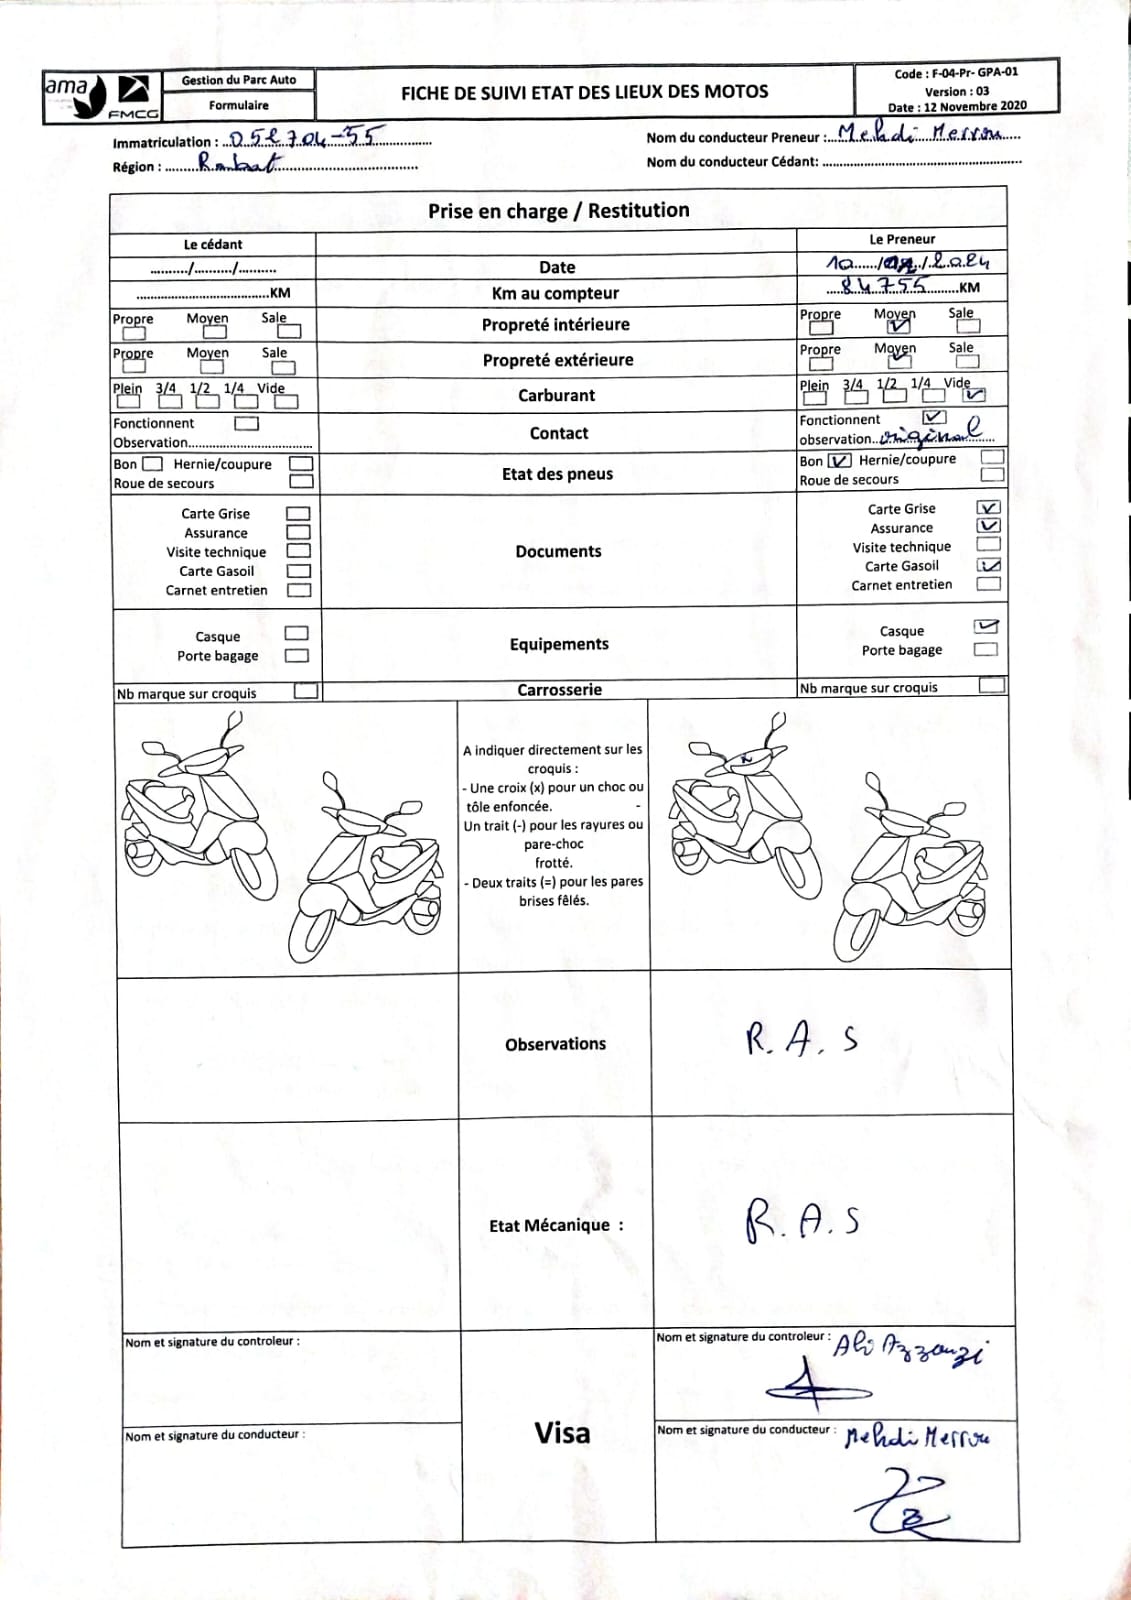 ama
FMCG
Gestion du Parc Auto
Formulaire
FICHE DE SUIVI ETAT DES LIEUX DES MOTOS
Code : F-04-Pr- GPA-01
Version : 03
Date : 12 Novembre 2020
Immatriculation : 052704-55
Nom du conducteur Preneur : Mehdi Merrou
Région : Rabat
Nom du conducteur Cédant:
Prise en charge / Restitution
Le cédant
Le Preneur
........../........../..........
Date
10 / / 2024
KM
Km au compteur
84755 KM
Propre Moyen Sale
Propreté intérieure
Propre Moyen Sale
Propre Moyen Sale
Propreté extérieure
Propre Moyen Sale
Plein 3/4 1/2 1/4 Vide
Carburant
Plein 3/4 1/2 1/4 Vide
Fonctionnent
Observation
Contact
Fonctionnent
observation original
Bon Hernie/coupure
Roue de secours
Etat des pneus
Bon Hernie/coupure
Roue de secours
Carte Grise
Assurance
Visite technique
Carte Gasoil
Carnet entretien
Documents
Carte Grise
Assurance
Visite technique
Carte Gasoil
Carnet entretien
Casque
Porte bagage
Equipements
Casque
Porte bagage
Nb marque sur croquis
Carrosserie
Nb marque sur croquis
A indiquer directement sur les
croquis :
- Une croix (x) pour un choc ou
tôle enfoncée. -
Un trait (-) pour les rayures ou
pare-choc
frotté.
- Deux traits (=) pour les pares
brises fêlés.
Observations
R.A.S
Etat Mécanique :
R.A.S
Nom et signature du controleur :
Nom et signature du conducteur :
Visa
Nom et signature du controleur : Ali Azzouzi
Nom et signature du conducteur : Mehdi Merrou